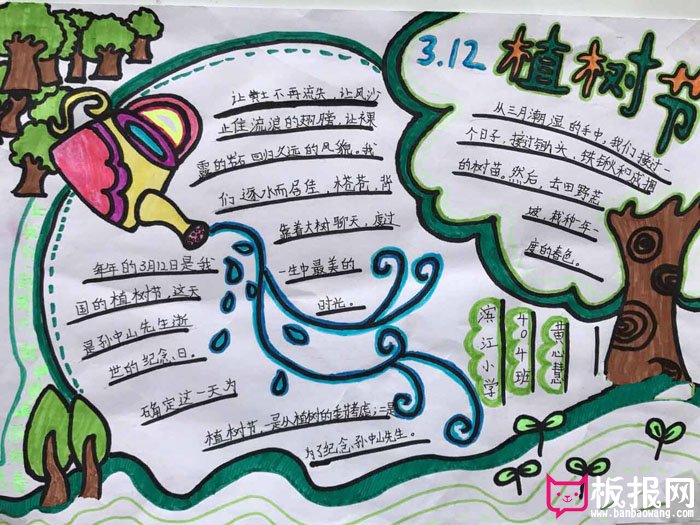 3.12 植树节
让黄土不再流失，让风沙
止住流浪的翅膀，让裸
露的岩石回归久远的风貌。我
们逐水而居住，搭着，背
靠着大树聊天，度过
一生中最美的
时光。
从三月潮湿的手中，我们接过一
个日子，接过锄头，铁锹和成捆
的树苗。然后，去田野荒
坡，栽种一年一
度的春色。
每年的3月12日是我
国的植树节，这天
是孙中山先生逝
世的纪念日。
确定这一天为
植树节，一是从植树的季节考虑；二是
为了纪念孙中山先生。
滨江小学
404班
黄心慧
板报网
www.banbaowang.com